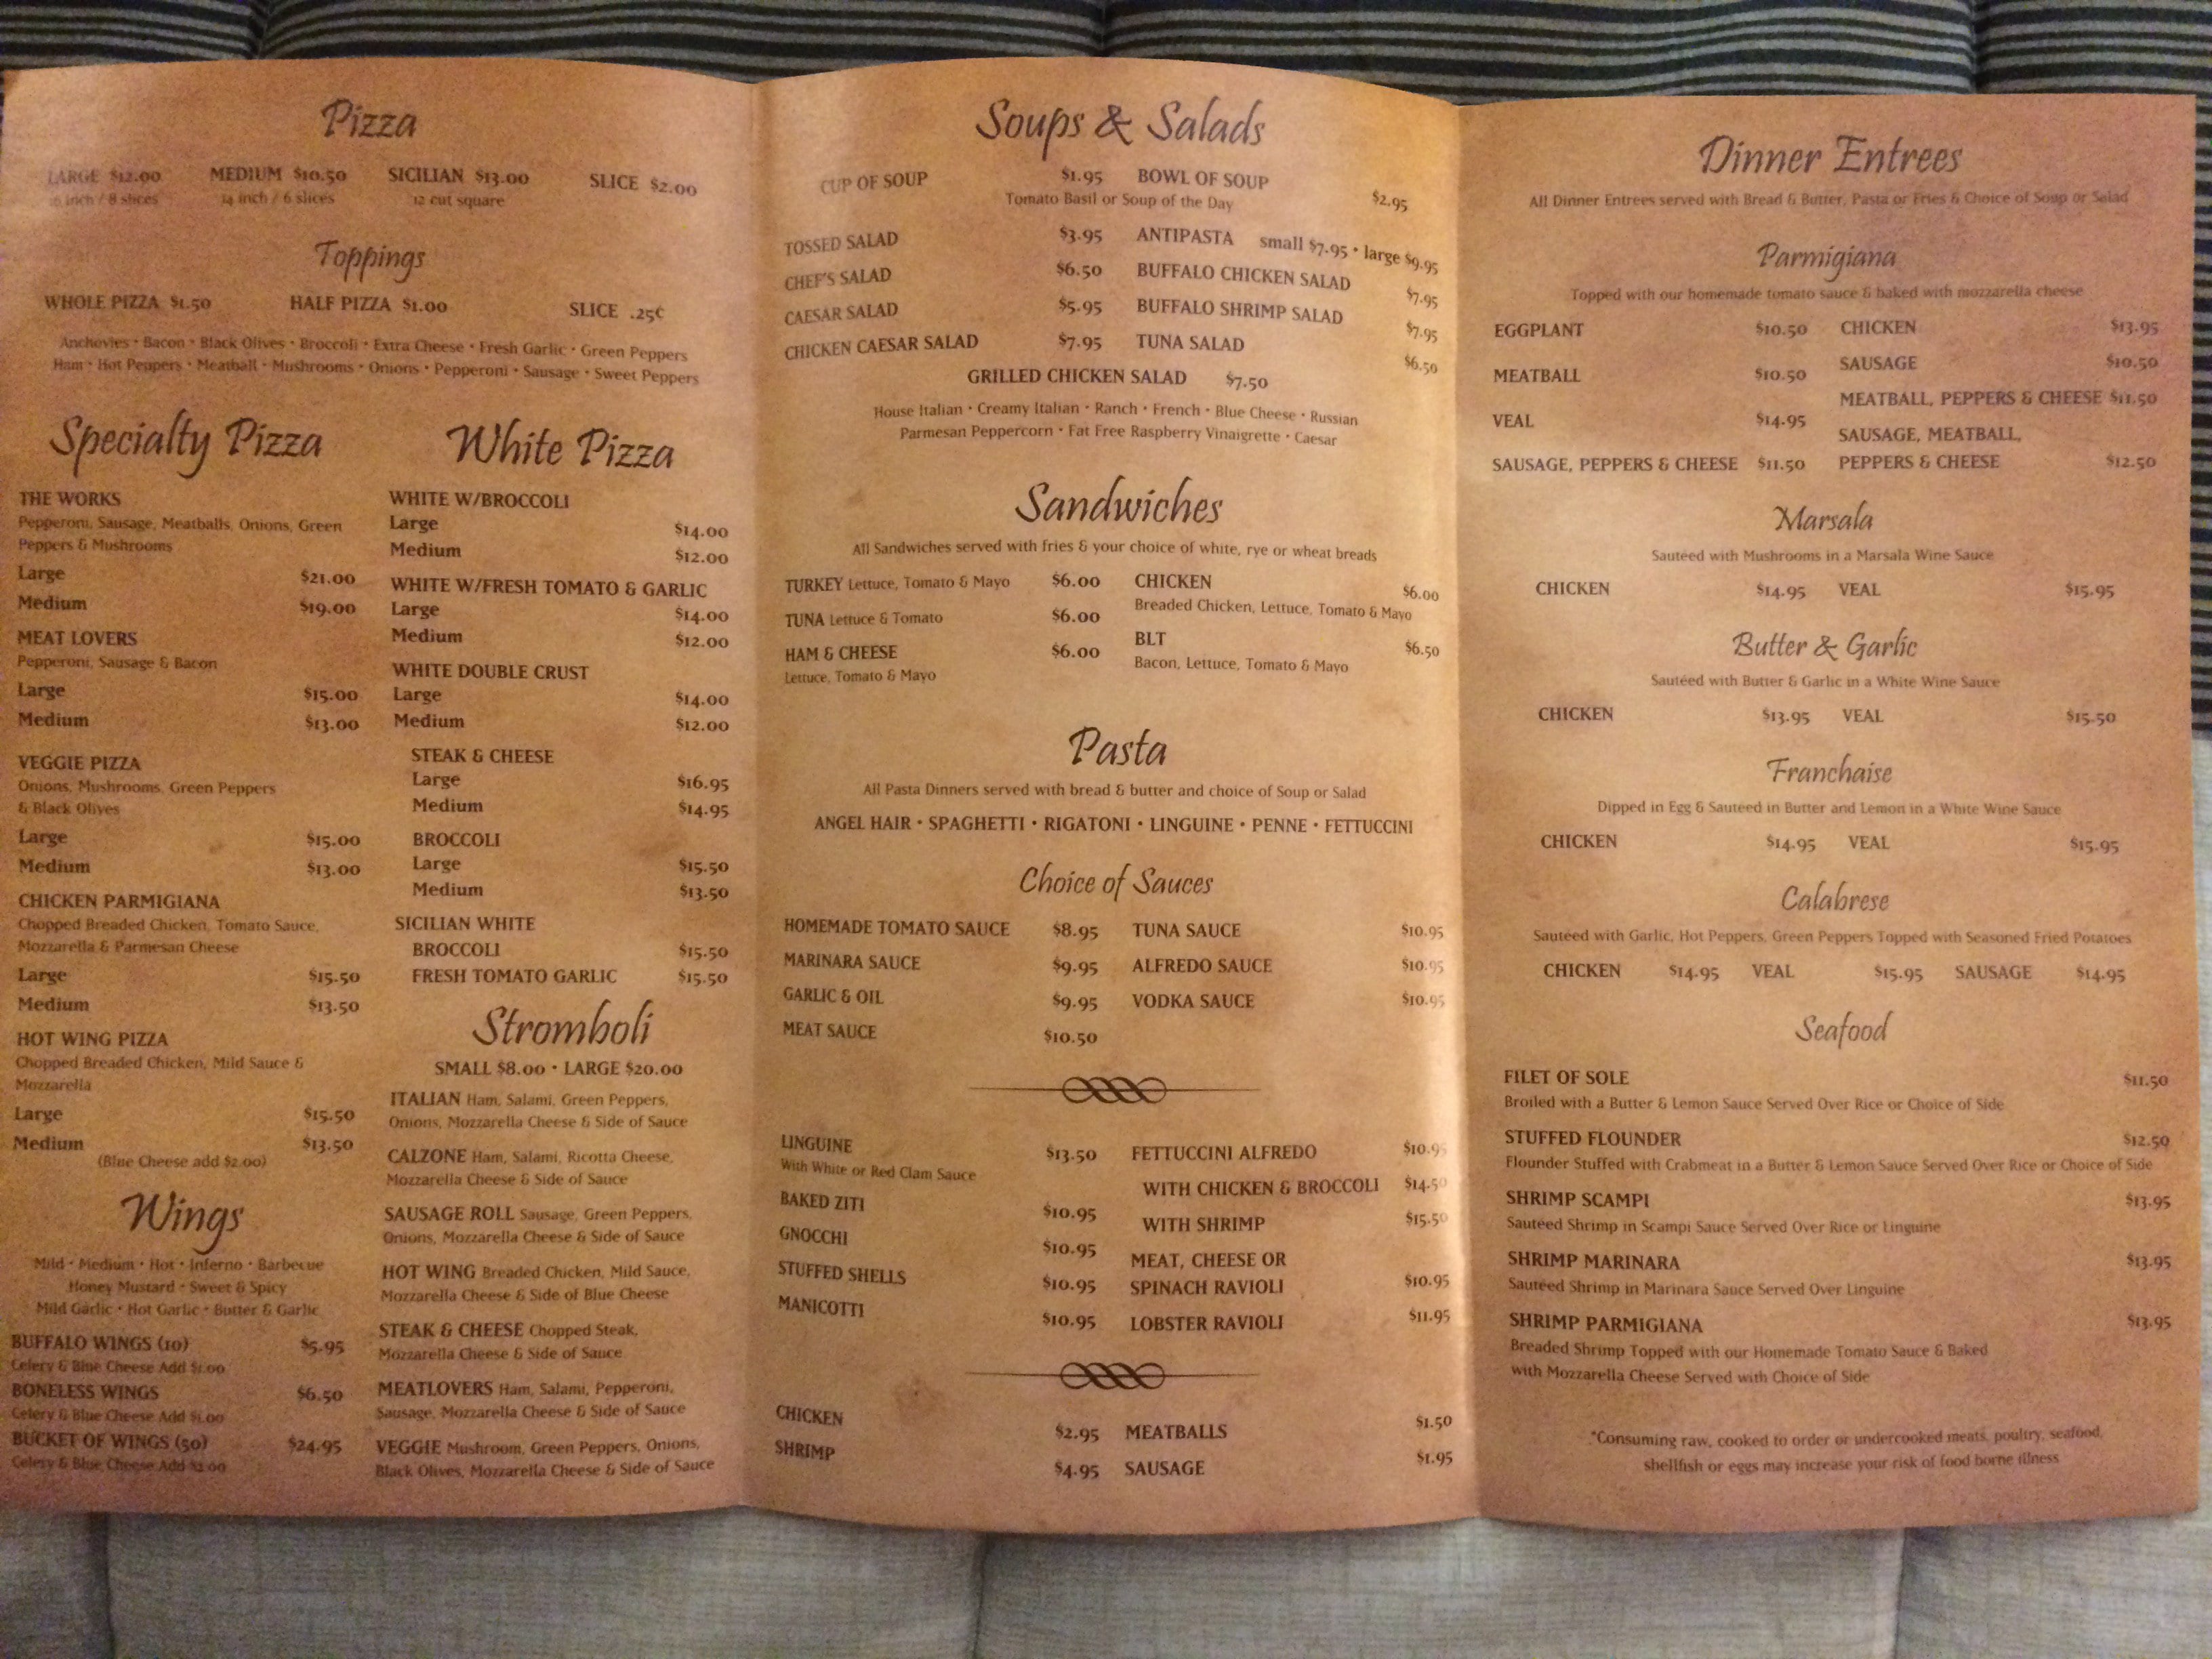 Pizza
LARGE $12.00 MEDIUM $10.50 SICILIAN $13.00 SLICE $2.00
inch / 8 slices 14 inch / 6 slices 12 cut square
Toppings
WHOLE PIZZA $1.50 HALF PIZZA $1.00 SLICE .25¢
Anchovies • Bacon • Black Olives • Broccoli • Extra Cheese • Fresh Garlic • Green Peppers
Ham • Hot Peppers • Meatball • Mushrooms • Onions • Pepperoni • Sausage • Sweet Peppers
Specialty Pizza
THE WORKS
Pepperoni, Sausage, Meatballs, Onions, Green
Peppers & Mushrooms
Large $21.00
Medium $19.00
MEAT LOVERS
Pepperoni, Sausage & Bacon
Large $15.00
Medium $13.00
VEGGIE PIZZA
Onions, Mushrooms, Green Peppers
& Black Olives
Large $15.00
Medium $13.00
CHICKEN PARMIGIANA
Chopped Breaded Chicken, Tomato Sauce,
Mozzarella & Parmesan Cheese
Large $15.50
Medium $13.50
HOT WING PIZZA
Chopped Breaded Chicken, Mild Sauce &
Mozzarella
Large $15.50
Medium $13.50
(Blue Cheese add $2.00)
Wings
Mild • Medium • Hot • Inferno • Barbecue
Honey Mustard • Sweet & Spicy
Mild Garlic • Hot Garlic • Butter & Garlic
BUFFALO WINGS (10) $5.95
Celery & Blue Cheese Add $1.00
BONELESS WINGS $6.50
Celery & Blue Cheese Add $1.00
BUCKET OF WINGS (50) $24.95
Celery & Blue Cheese Add $2.00
White Pizza
WHITE W/BROCCOLI
Large $14.00
Medium $12.00
WHITE W/FRESH TOMATO & GARLIC
Large $14.00
Medium $12.00
WHITE DOUBLE CRUST
Large $14.00
Medium $12.00
STEAK & CHEESE
Large $16.95
Medium $14.95
BROCCOLI
Large $15.50
Medium $13.50
SICILIAN WHITE
BROCCOLI $15.50
FRESH TOMATO GARLIC $15.50
Stromboli
SMALL $8.00 • LARGE $20.00
ITALIAN Ham, Salami, Green Peppers,
Onions, Mozzarella Cheese & Side of Sauce
CALZONE Ham, Salami, Ricotta Cheese,
Mozzarella Cheese & Side of Sauce
SAUSAGE ROLL Sausage, Green Peppers,
Onions, Mozzarella Cheese & Side of Sauce
HOT WING Breaded Chicken, Mild Sauce,
Mozzarella Cheese & Side of Blue Cheese
STEAK & CHEESE Chopped Steak,
Mozzarella Cheese & Side of Sauce
MEATLOVERS Ham, Salami, Pepperoni,
Sausage, Mozzarella Cheese & Side of Sauce
VEGGIE Mushroom, Green Peppers, Onions,
Black Olives, Mozzarella Cheese & Side of Sauce
Soups & Salads
CUP OF SOUP $1.95 BOWL OF SOUP $2.95
Tomato Basil or Soup of the Day
TOSSED SALAD $3.95 ANTIPASTA small $7.95 • large $9.95
CHEF'S SALAD $6.50 BUFFALO CHICKEN SALAD $7.95
CAESAR SALAD $5.95 BUFFALO SHRIMP SALAD $7.95
CHICKEN CAESAR SALAD $7.95 TUNA SALAD $6.50
GRILLED CHICKEN SALAD $7.50
House Italian • Creamy Italian • Ranch • French • Blue Cheese • Russian
Parmesan Peppercorn • Fat Free Raspberry Vinaigrette • Caesar
Sandwiches
All Sandwiches served with fries & your choice of white, rye or wheat breads
TURKEY Lettuce, Tomato & Mayo $6.00 CHICKEN $6.00
Breaded Chicken, Lettuce, Tomato & Mayo
TUNA Lettuce & Tomato $6.00
HAM & CHEESE $6.00 BLT $6.50
Lettuce, Tomato & Mayo Bacon, Lettuce, Tomato & Mayo
Pasta
All Pasta Dinners served with bread & butter and choice of Soup or Salad
ANGEL HAIR • SPAGHETTI • RIGATONI • LINGUINE • PENNE • FETTUCCINI
Choice of Sauces
HOMEMADE TOMATO SAUCE $8.95 TUNA SAUCE $10.95
MARINARA SAUCE $9.95 ALFREDO SAUCE $10.95
GARLIC & OIL $9.95 VODKA SAUCE $10.95
MEAT SAUCE $10.50
LINGUINE $13.50 FETTUCCINI ALFREDO $10.95
With White or Red Clam Sauce
WITH CHICKEN & BROCCOLI $14.50
BAKED ZITI $10.95 WITH SHRIMP $15.50
GNOCCHI $10.95 MEAT, CHEESE OR
STUFFED SHELLS $10.95 SPINACH RAVIOLI $10.95
MANICOTTI $10.95 LOBSTER RAVIOLI $11.95
CHICKEN $2.95 MEATBALLS $1.50
SHRIMP $4.95 SAUSAGE $1.95
Dinner Entrees
All Dinner Entrees served with Bread & Butter, Pasta or Fries & Choice of Soup or Salad
Parmigiana
Topped with our homemade tomato sauce & baked with mozzarella cheese
EGGPLANT $10.50 CHICKEN $13.95
SAUSAGE $10.50
MEATBALL $10.50
MEATBALL, PEPPERS & CHEESE $11.50
VEAL $14.95
SAUSAGE, MEATBALL,
SAUSAGE, PEPPERS & CHEESE $11.50 PEPPERS & CHEESE $12.50
Marsala
Sautéed with Mushrooms in a Marsala Wine Sauce
CHICKEN $14.95 VEAL $15.95
Butter & Garlic
Sautéed with Butter & Garlic in a White Wine Sauce
CHICKEN $13.95 VEAL $15.50
Franchaise
Dipped in Egg & Sautéed in Butter and Lemon in a White Wine Sauce
CHICKEN $14.95 VEAL $15.95
Calabrese
Sautéed with Garlic, Hot Peppers, Green Peppers Topped with Seasoned Fried Potatoes
CHICKEN $14.95 VEAL $15.95 SAUSAGE $14.95
Seafood
FILET OF SOLE $11.50
Broiled with a Butter & Lemon Sauce Served Over Rice or Choice of Side
STUFFED FLOUNDER $12.50
Flounder Stuffed with Crabmeat in a Butter & Lemon Sauce Served Over Rice or Choice of Side
SHRIMP SCAMPI $13.95
Sautéed Shrimp in Scampi Sauce Served Over Rice or Linguine
SHRIMP MARINARA $13.95
Sautéed Shrimp in Marinara Sauce Served Over Linguine
SHRIMP PARMIGIANA $13.95
Breaded Shrimp Topped with our Homemade Tomato Sauce & Baked
with Mozzarella Cheese Served with Choice of Side
*Consuming raw, cooked to order or undercooked meats, poultry, seafood,
shellfish or eggs may increase your risk of food borne illness